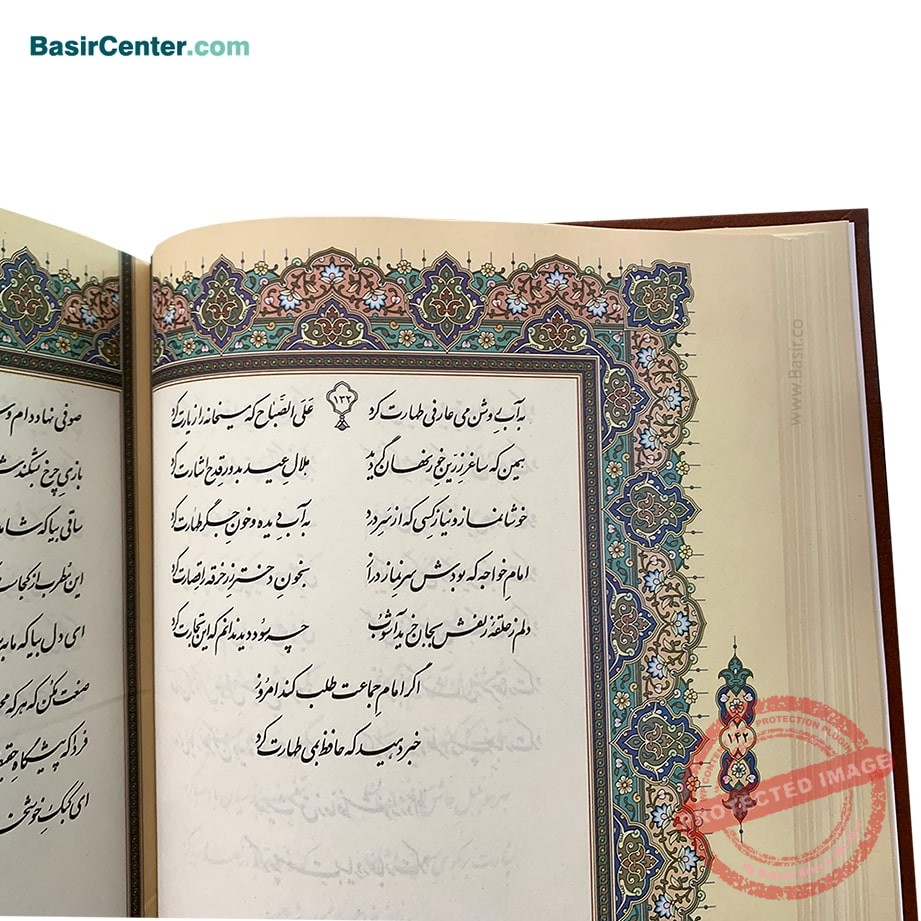 BasirCenter.com
www.Basir.co
به آبِ روشن می عارفی طهارت کرد ۱۳۲ عَلَی الصَّباح که میخانه را زیارت کرد
همین که ساغر زرّین خور نهان گردید هلال عید به دور قدح اشارت کرد
خوشا نماز و نیاز کسی که از سَرِ درد به آب دیده و خونِ جگر طهارت کرد
امام خواجه که بودش سر نماز دراز بخون دختر رز خرقه را قصارت کرد
دلم ز حلقهٔ زلفش بجان خرید آشوب چه سود دید ندانم که این تجارت کرد
اگر امام جماعت طلب کند امروز
خبر دهید که حافظ بمی طهارت کرد
۱۴۲
صوفی نهاد دام و
بازی چرخ بشکند
ساقی بیا که
این مطرب از
ای دل بیا که ما
صنعت مکن که هر که
فردا که پیشگاه
ای کبک
PROTECTED IMAGE